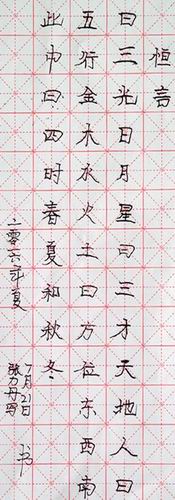 恒言
曰三光日月星曰三才天地人曰
五行金木水火土曰方位东西南
此中曰四时春夏和秋冬
二零一六年夏
7月21日
张力丹写
书